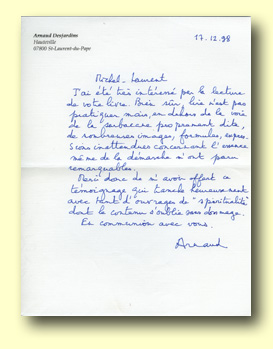 Arnaud Desjardins
Hauteville
07800 St-Laurent-du-Pape
17.12.98
Michel-Laurent
J'ai été très intéressé par la lecture
de votre livre. Bien sûr, lire n'est pas
pratiquer mais, en dehors de la voie
de la proprement dite,
de nombreuses images, formules, expres-
sions inattendues concernant l'essence
même de la démarche m'ont paru
remarquables.
Merci donc de m'avoir offert ce
témoignage qui tranche heureusement
avec tant d'ouvrages de "spiritualité"
dont le contenu s'oublie sans dommage.
En communion avec vous.
Arnaud